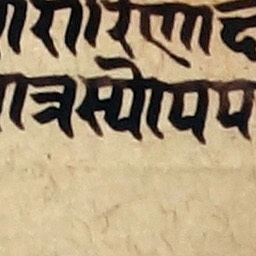 ारारिणाद
ात्रस्योपप